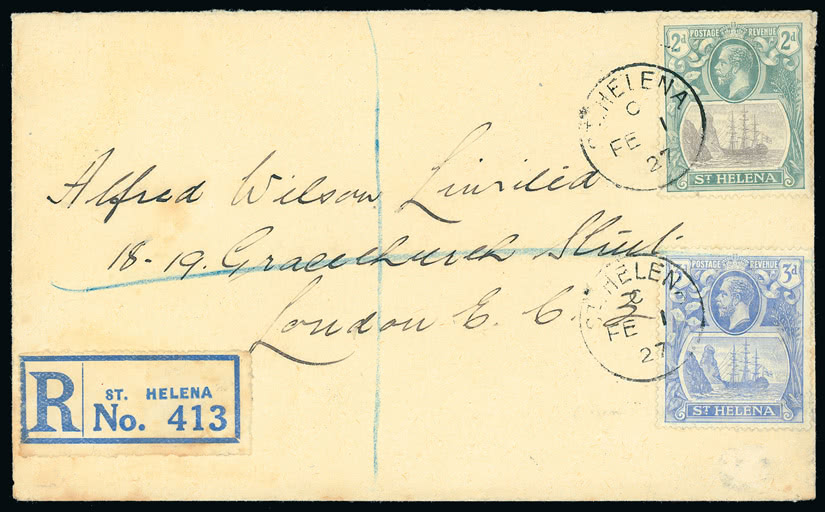 2d POSTAGE REVENUE 2d
ST HELENA
ST. HELENA
C
FE 1
27
Alfred Wilson Limited
18-19. Gracechurch Street
London E. C. 3
POSTAGE REVENUE 3d
ST HELENA
ST. HELENA
FE 1
27
R
ST. HELENA
No. 413